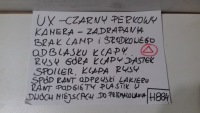 UX - CZARNY PERŁOWY
KAMERA - ZADRAPANA
BRAK LAMP I ŚRODKOWEGO
ODBLASKU KLAPY
RYSY GÓRA KLAPY DASZEK
SPOILER, KLAPA RYSY
SPÓD RANT ODPRYSKI LAKIERU
RANT PODGIĘTY PLASTIK W
DWÓCH MIEJSCACH DO
H884